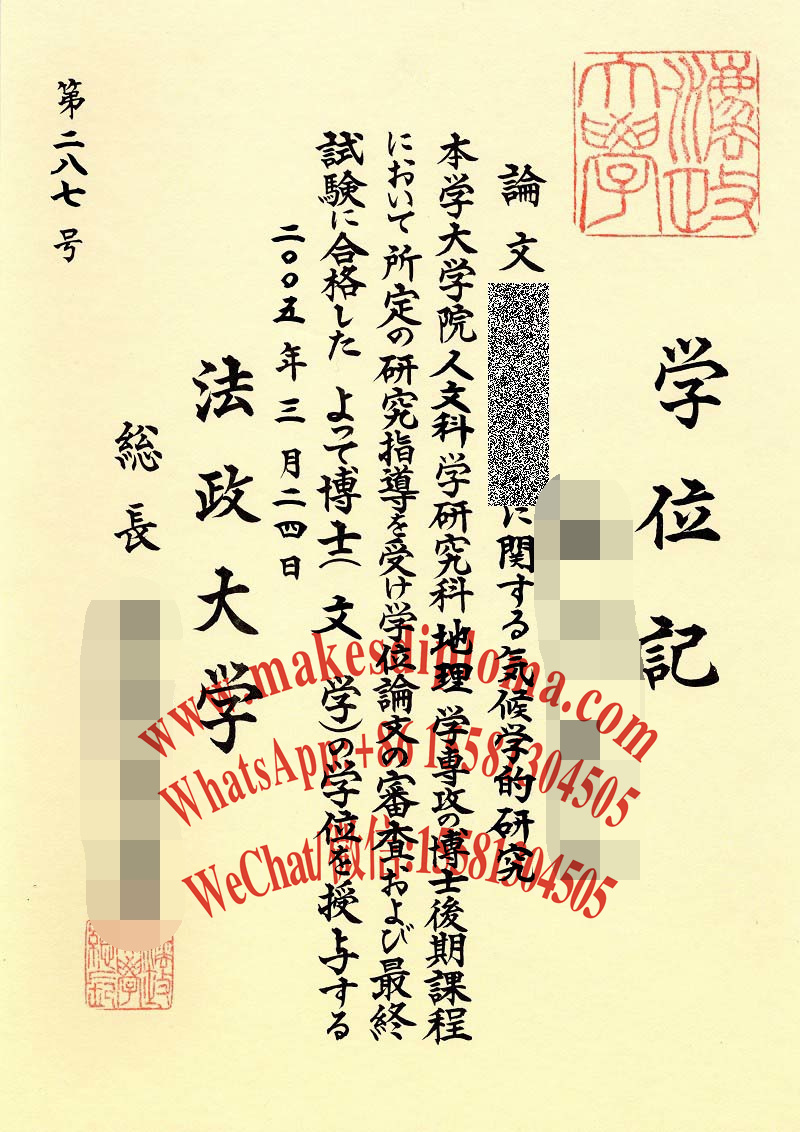 法政
大學
学位記
論文
に関する気候学的研究
本学大学院人文科学研究科地理学専攻の博士後期課程
において所定の研究指導を受け学位論文の審査および最終
試験に合格した よって博士(文学)の学位を授与する
二〇〇五年三月二四日
法政大学
総長
第二八七号
www.makesdiploma.com
WhatsApp:+86 19581304505
WeChat/微信:19581304505